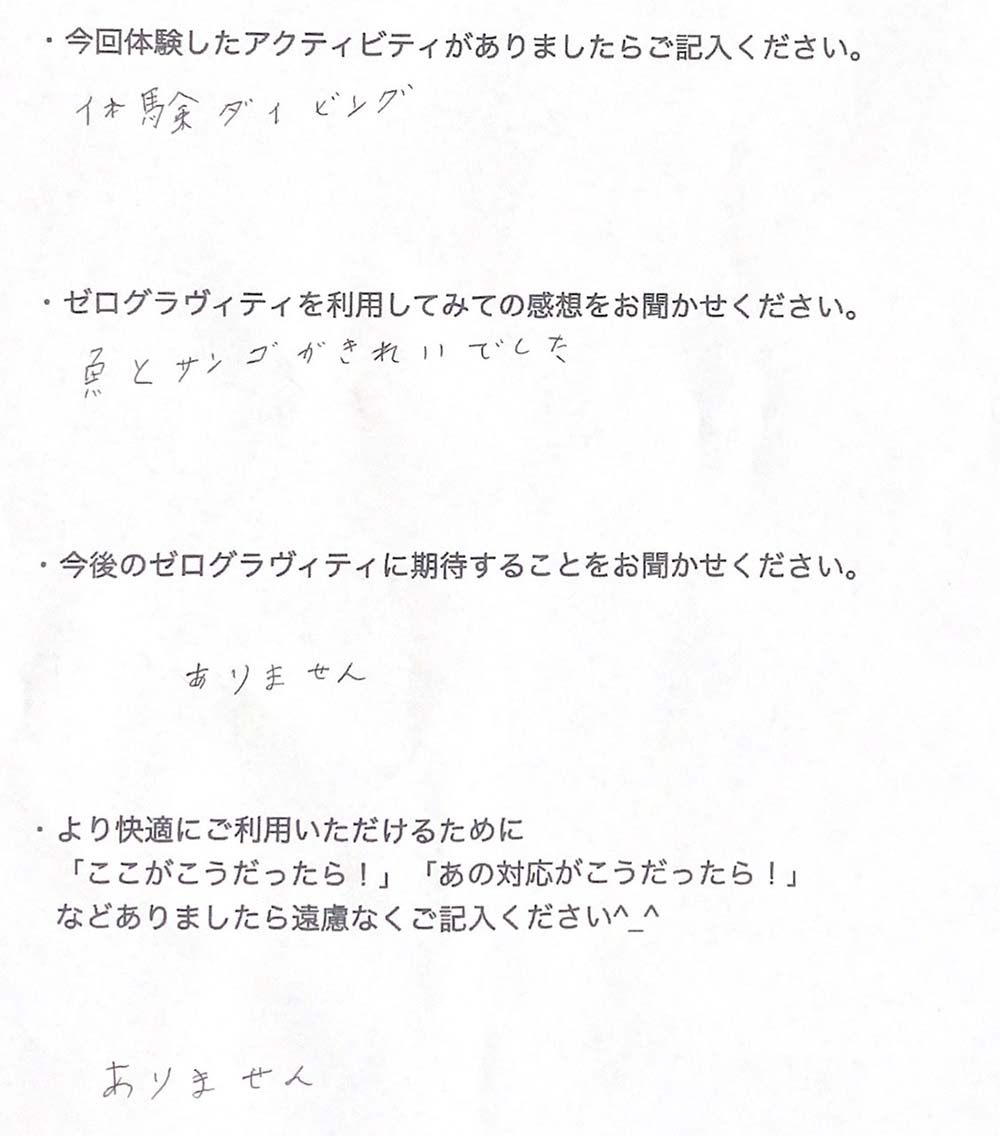 ・今回体験したアクティビティがありましたらご記入ください。
体験ダイビング
・ゼログラヴィティを利用してみての感想をお聞かせください。
魚とサンゴがきれいでした
・今後のゼログラヴィティに期待することをお聞かせください。
ありません
・より快適にご利用いただけるために
「ここがこうだったら！」「あの対応がこうだったら！」
などありましたら遠慮なくご記入ください^_^
ありません